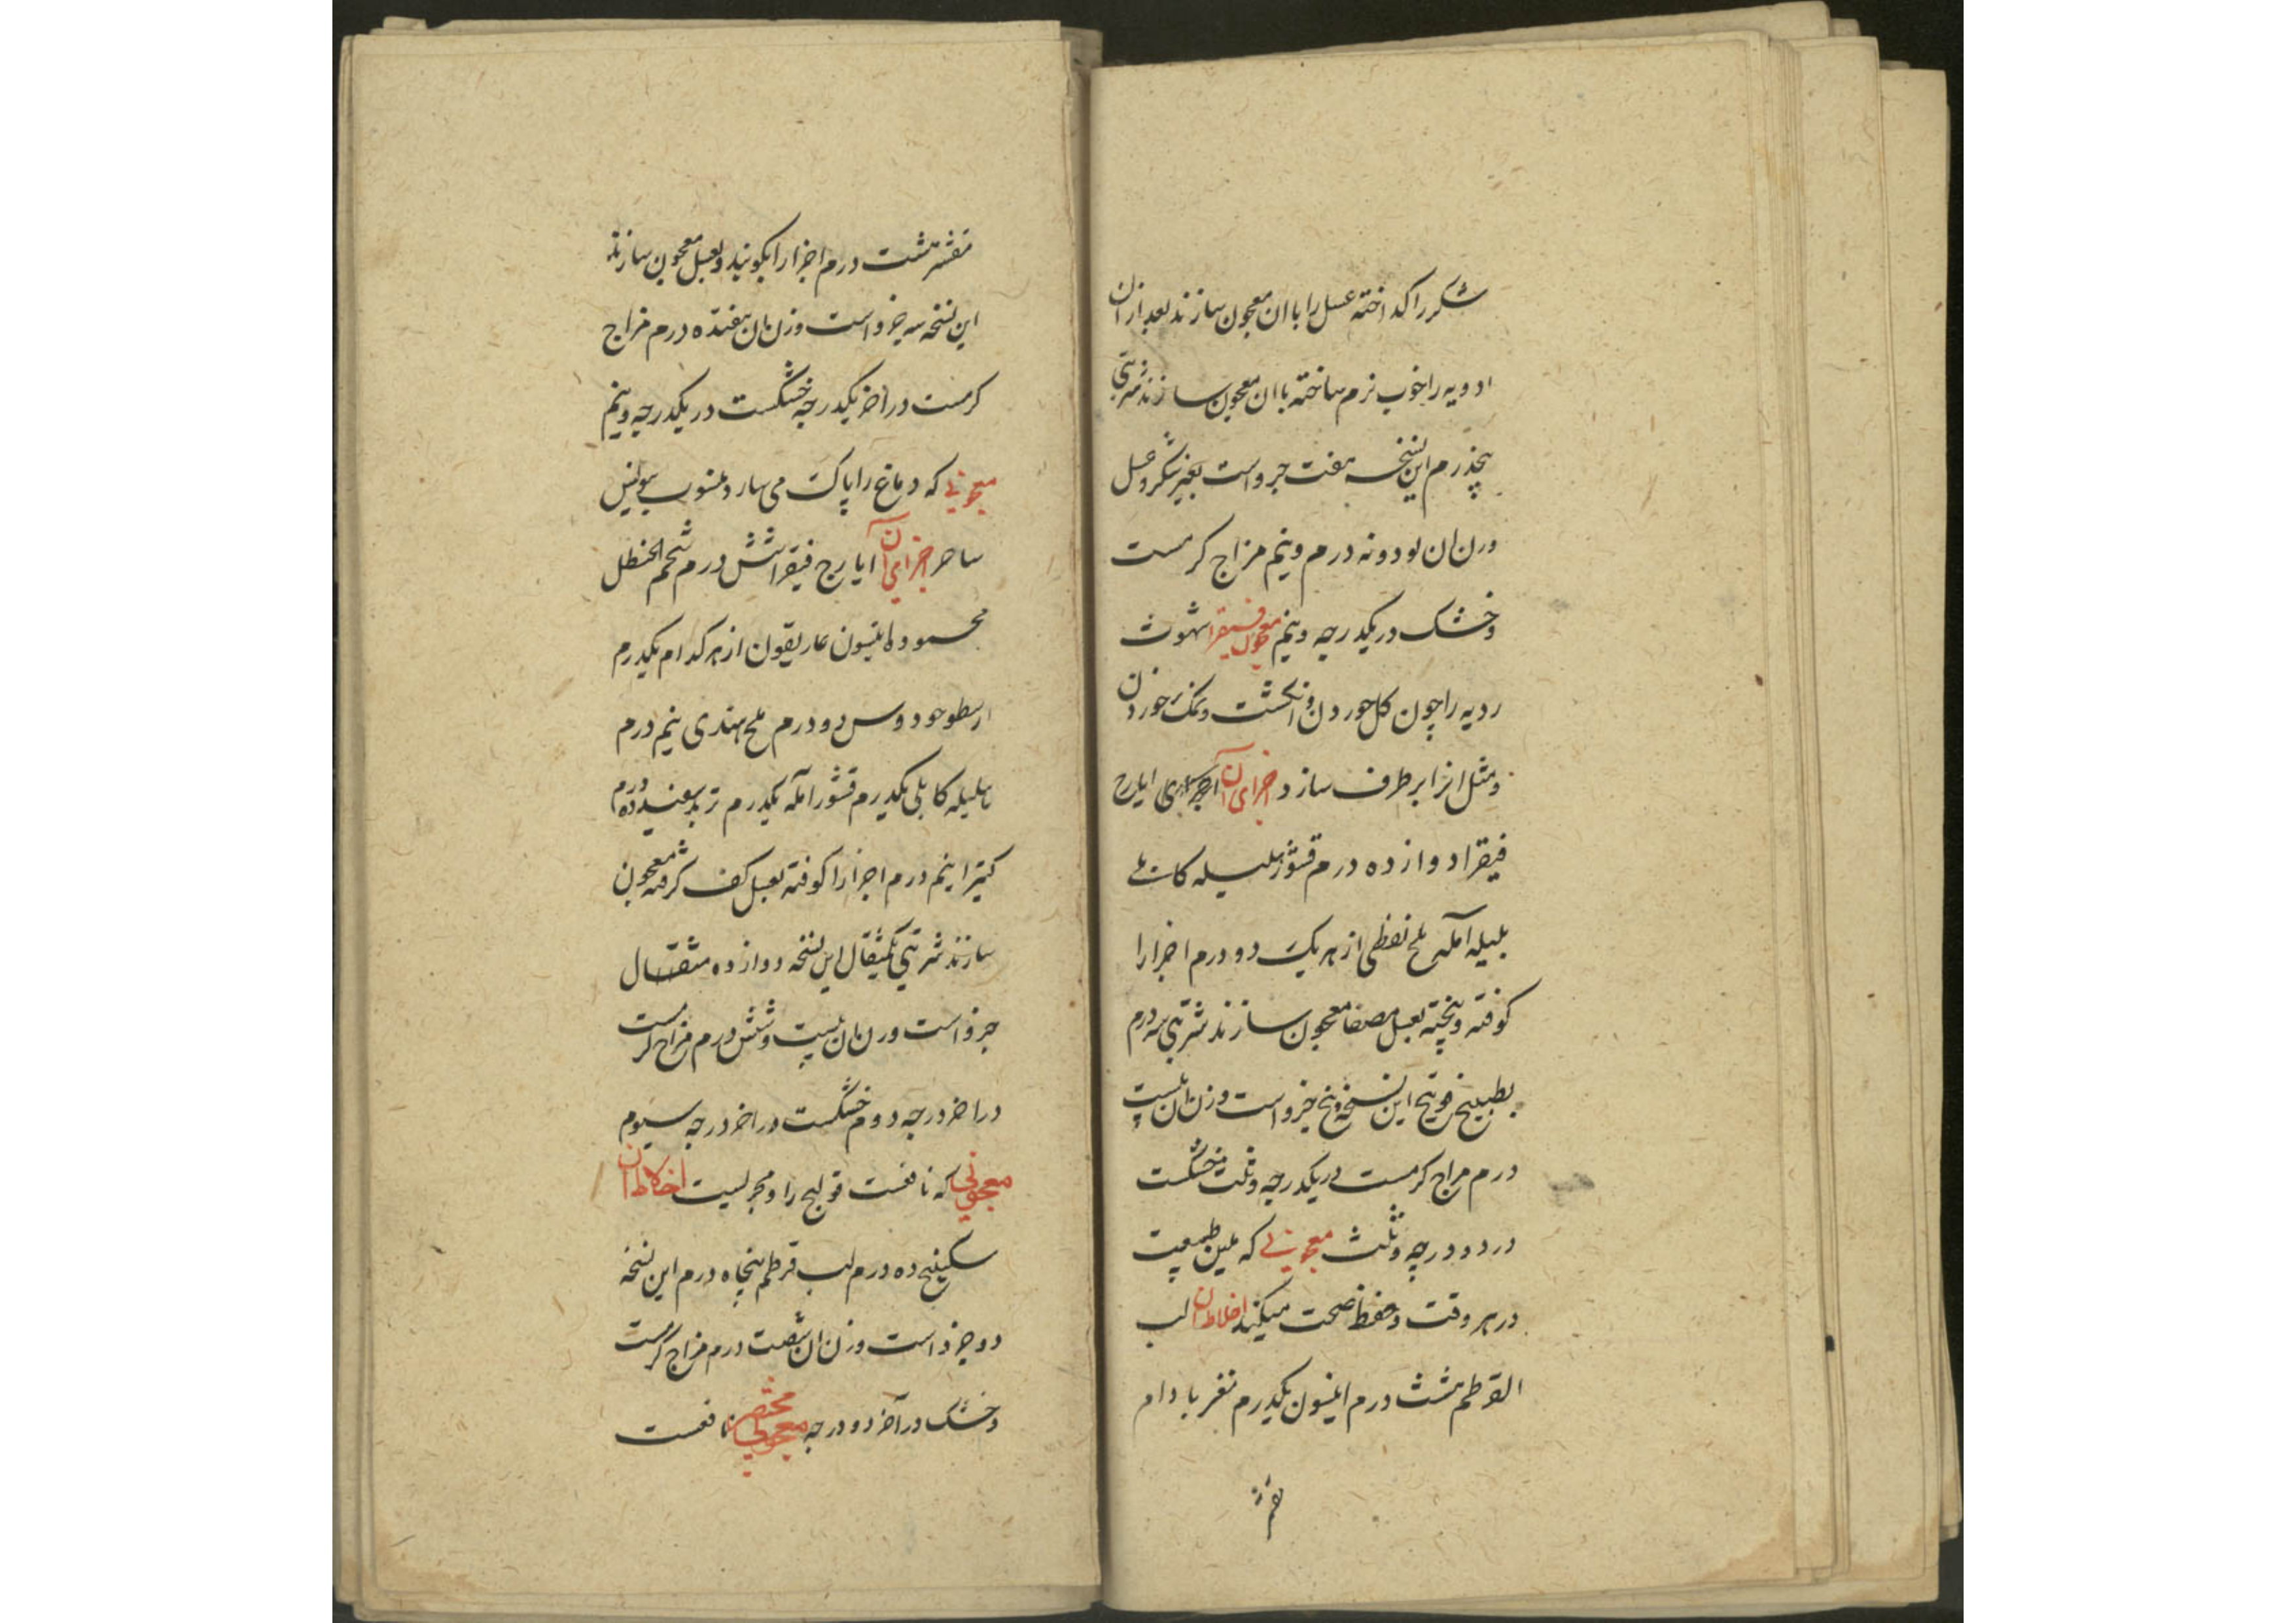 شکر را کداخته عسل را با ان معجون سازند بعد از ان
ادویه را خوب نرم ساخته با ان معجون سازند شربتی
پنجدرم این نسخه هفت جزو است بغیر شکر و عسل
وزن ان نود و نه درم و نیم مزاج کرمست
و خشک در یکدرجه و نیم معجون فیقرا شهوت
ردیه را چون کل خوردن و انکشت و نمک خوردن
و مثل انرا برطرف سازد اجزای آن ایارج
فیقرا دوازده درم قشور هلیله کابلی
بلیله آمله ملح نفطی از هر یک دو درم اجزا را
کوفته و پخته بعسل مصفا معجون سازند شربتی سه درم
بطبیخ این نسخه پنج جزو است وزن ان بیست
درم مزاج کرمست در یکدرجه و ثلث خشکست
در دو درجه و ثلث معجونی که ملین طبیعت
در هر وقت و حفظ صحت میکند اخلاط ان لب
القرطم هشت درم انیسون یکدرم مغز بادام
مقشر
مقشر هشت درم اجزا را بکوبند و بعسل معجون سازند
این نسخه سه جزو است وزن ان هفتده درم مزاج
کرمست در اخر یکدرجه خشکست در یکدرجه و نیم
معجونی که دماغ را پاک می سازد منسوب بیولیس
ساحر اجزای آن ایارج فیقرا شش درم شحم الحنظل
محموده انیسون غاریقون از هر کدام یکدرم
اسطوخودوس دو درم ملح هندی نیم درم
هلیله کابلی یکدرم قشور آمله یکدرم تربد سفید ده درم
کتیرا نیم درم اجزا را کوفته بعسل کف کرفته معجون
سازند شربتی یکمثقال این نسخه دوازده مثقال
جزو است وزن ان بیست و شش درم مزاج کرمست
در اخر درجه دوم خشکست در اخر درجه سیوم
معجونی که نافعست قولنج را و مجربست اخلاط ان
سکبینج ده درم لب قرطم پنجاه درم این نسخه
دو جزو است وزن ان شصت درم مزاج کرمست
و خشک در آخر دو درجه معجونی مختصر نافعست